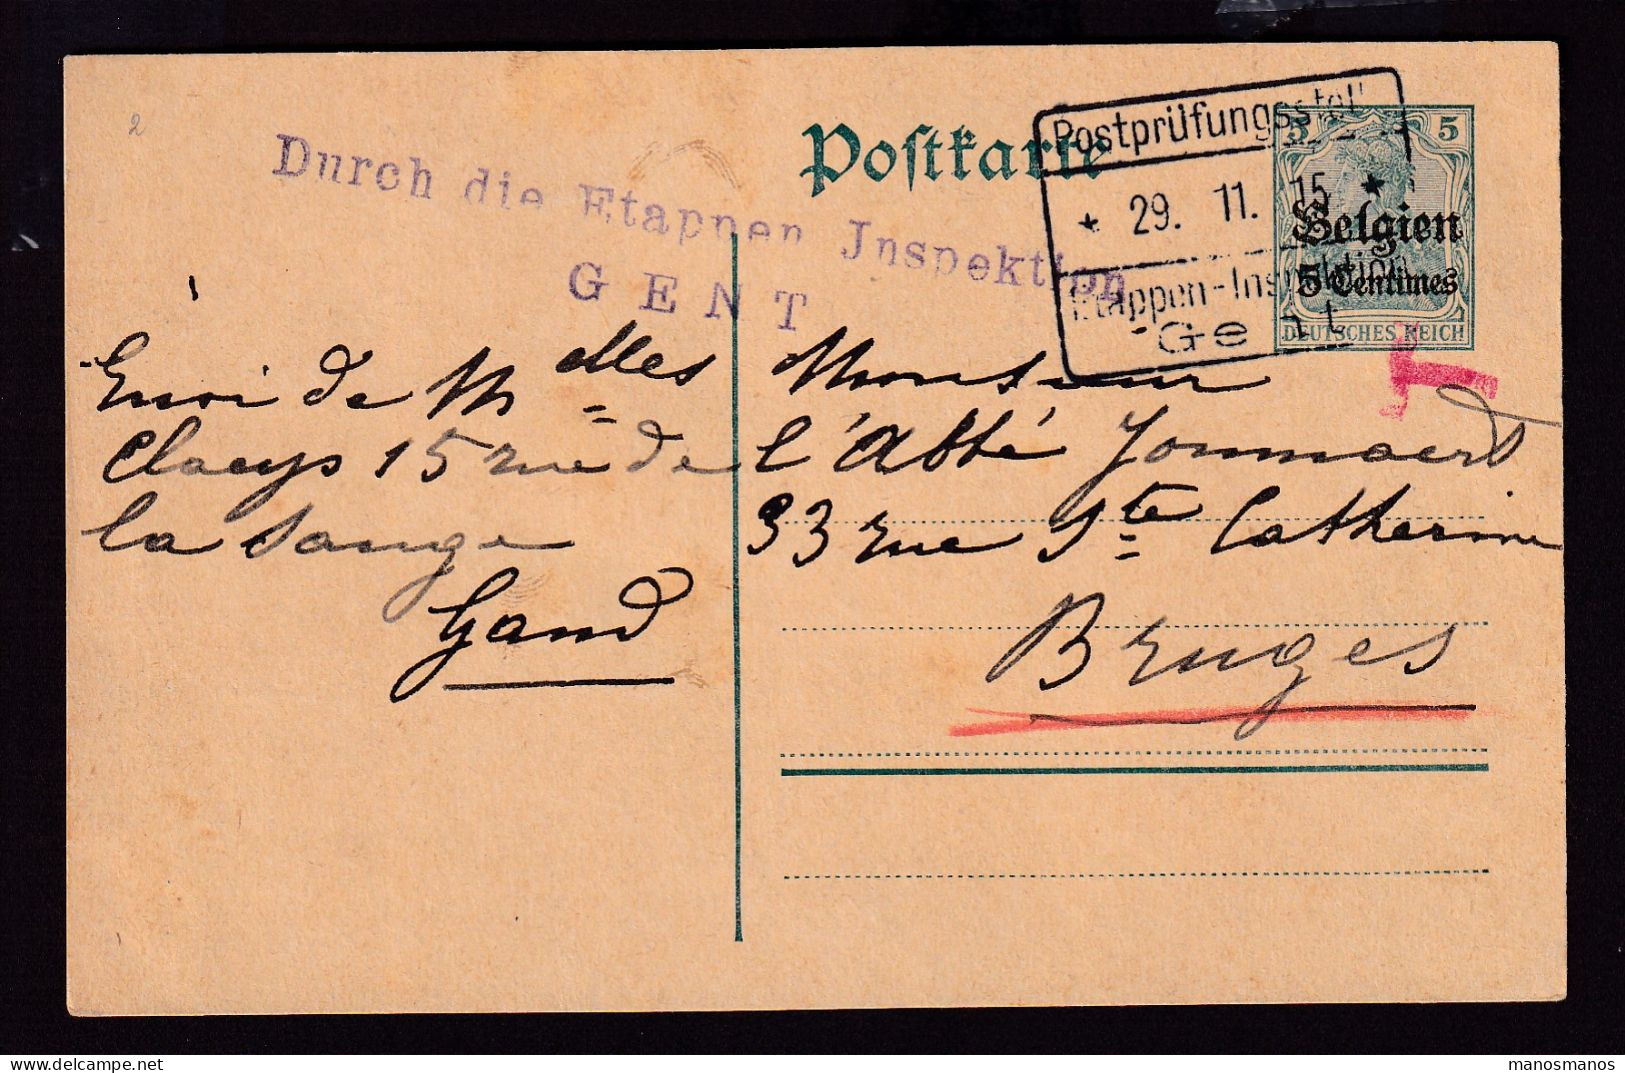 2
Durch die Etappen Inspektion
GENT
Postkarte
Postprüfungsstell
* 29. 11. 15 *
Etappen-Inspektion
Gent
5 5
Belgien
5 Centimes
DEUTSCHES REICH
T
Envoi de Mlles
Claeys 15 rue de
la Sauge
Gand
Monsieur
l'Abbé Jonnaert
33 rue Ste Catherine
Bruges
manosmanos